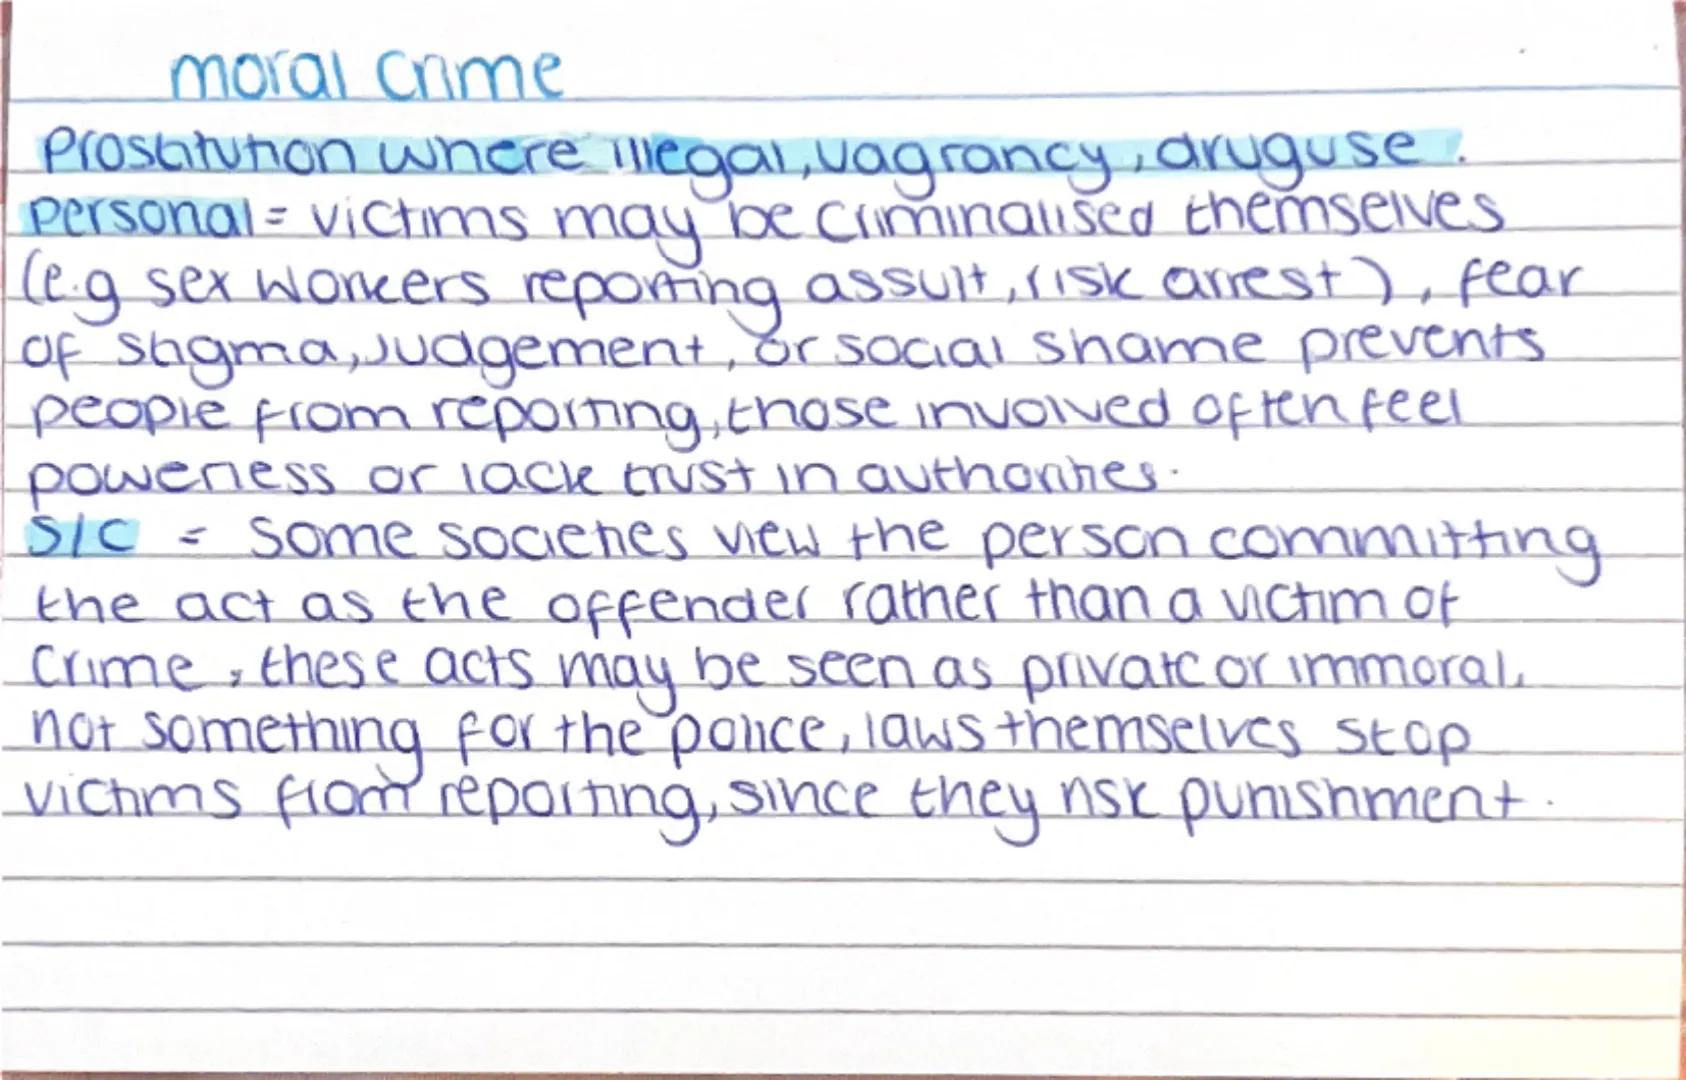 moral crime
Prostitution where illegal, vagrancy, druguse.
personal = victims may be criminalised themselves
(e.g sex workers reporting assult, risk arrest), fear
of stigma, judgement, or social shame prevents
people from reporting, those involved often feel
powerless or lack trust in authorities.
S/C = Some societies view the person committing
the act as the offender rather than a victim of
crime, these acts may be seen as private or immoral,
not something for the police, laws themselves stop
victims from reporting, since they risk punishment.